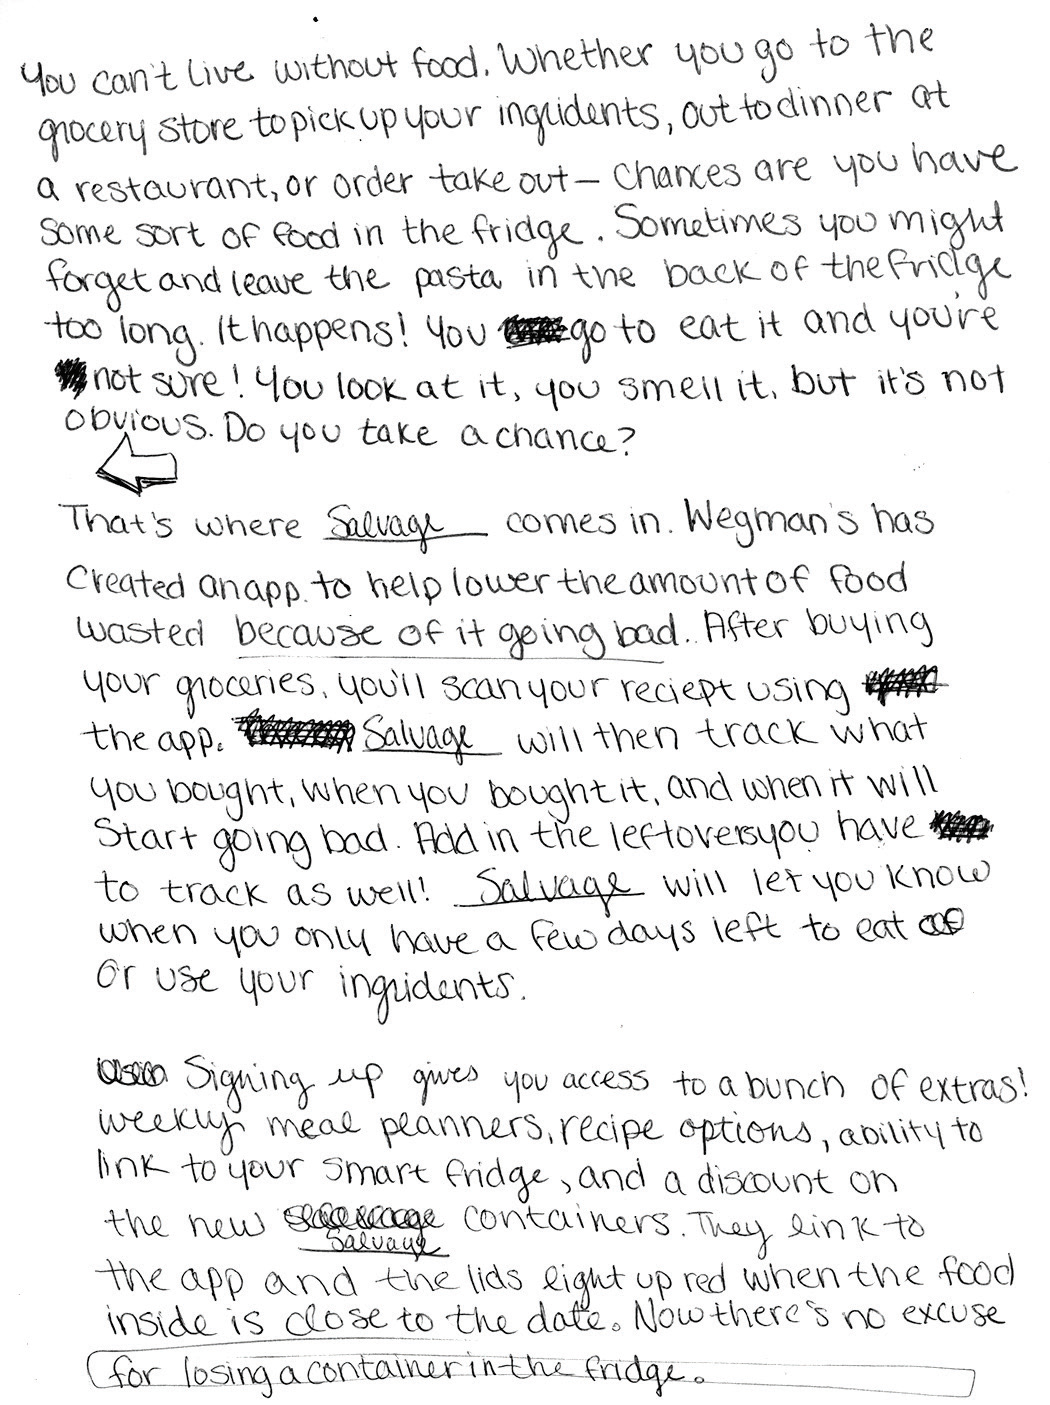 You can't live without food. Whether you go to the
grocery store to pick up your ingridents, out to dinner at
a restaurant, or order take out — chances are you have
some sort of food in the fridge. Sometimes you might
forget and leave the pasta in the back of the fridge
too long. It happens! You go to eat it and you're
not sure! You look at it, you smell it, but it's not
obvious. Do you take a chance?
That's where Salvage comes in. Wegman's has
created an app. to help lower the amount of food
wasted because of it going bad. After buying
your groceries, you'll scan your reciept using
the app. Salvage will then track what
you bought, when you bought it, and when it will
start going bad. Add in the leftovers you have
to track as well! Salvage will let you know
when you only have a few days left to eat
or use your ingridents.
Signing up gives you access to a bunch of extras!
weekly meal planners, recipe options, ability to
link to your smart fridge, and a discount on
the new Salvage containers. They link to
the app and the lids light up red when the food
inside is close to the date. Now there's no excuse
for losing a container in the fridge.